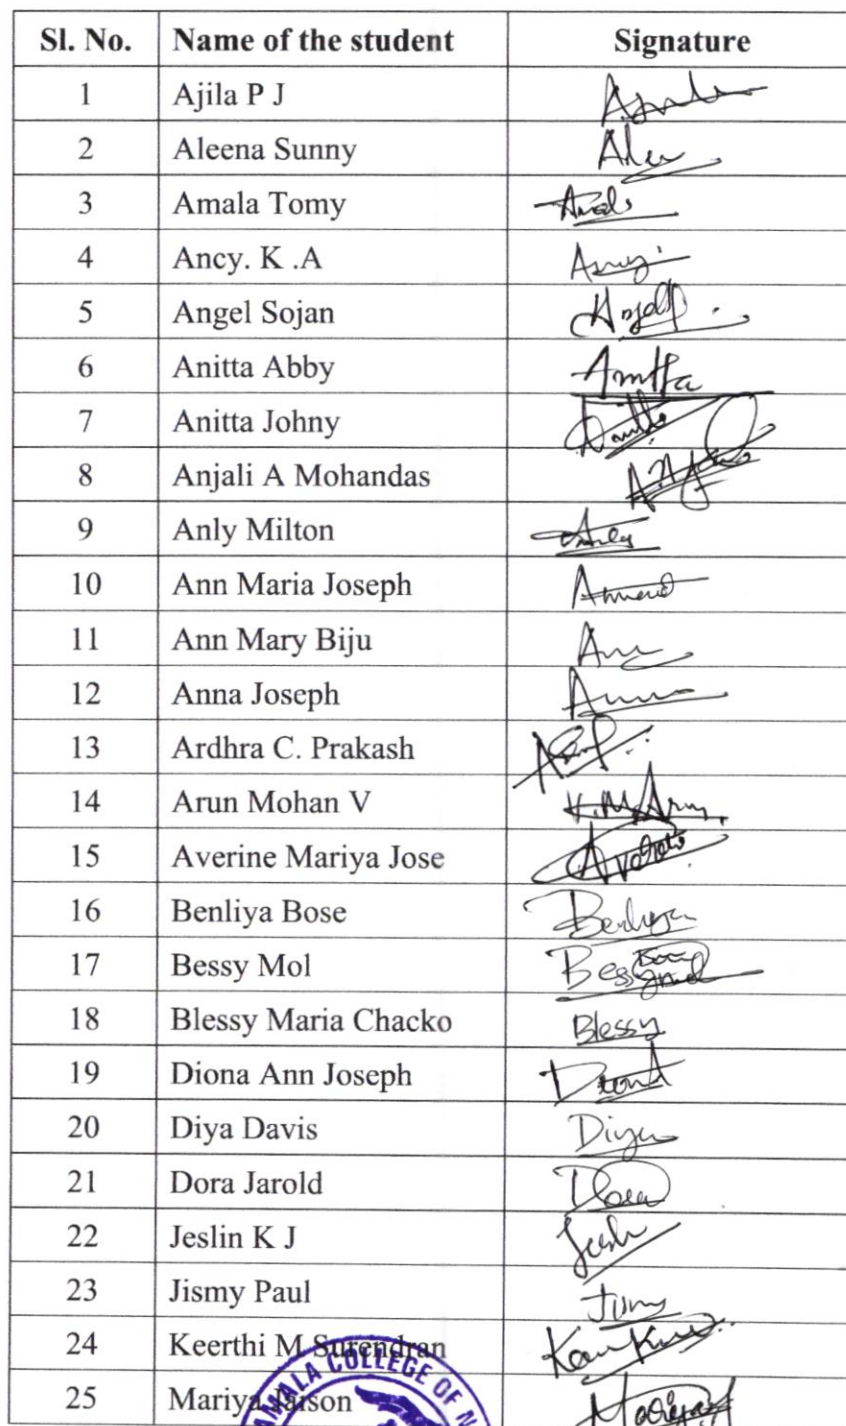 Sl. No. Name of the student Signature
1 Ajila P J
2 Aleena Sunny
3 Amala Tomy
4 Ancy. K .A
5 Angel Sojan
6 Anitta Abby Anitta
7 Anitta Johny
8 Anjali A Mohandas
9 Anly Milton Anly
10 Ann Maria Joseph
11 Ann Mary Biju
12 Anna Joseph
13 Ardhra C. Prakash
14 Arun Mohan V
15 Averine Mariya Jose
16 Benliya Bose Benliya
17 Bessy Mol Bessymol
18 Blessy Maria Chacko Blessy
19 Diona Ann Joseph Diona
20 Diya Davis Diya
21 Dora Jarold Dora
22 Jeslin K J
23 Jismy Paul
24 Keerthi M Surendran
25 Mariya Jaison Mariya
AMALA COLLEGE OF N